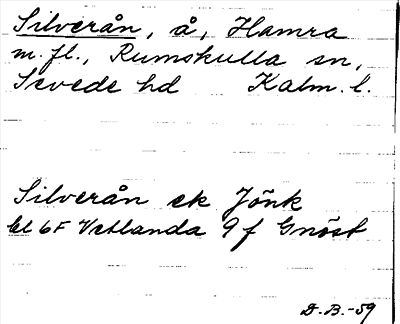 Silverån, å, Hamra
m. fl., Rumskulla sn,
Sevede hd Kalm. l.
Silverån ek Jönk
bl 6F Vetlanda 9f Gnöst
D.B.-59